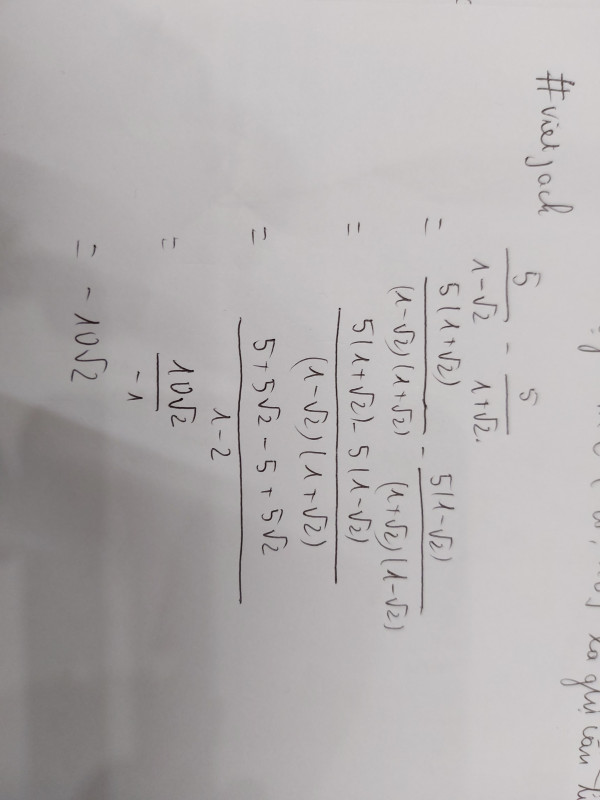 #vietjack
5/(1-√2) - 5/(1+√2)
= 5(1+√2)/((1-√2)(1+√2)) - 5(1-√2)/((1+√2)(1-√2))
= (5(1+√2) - 5(1-√2))/((1-√2)(1+√2))
= (5+5√2-5+5√2)/(1-2)
= 10√2/-1
= -10√2